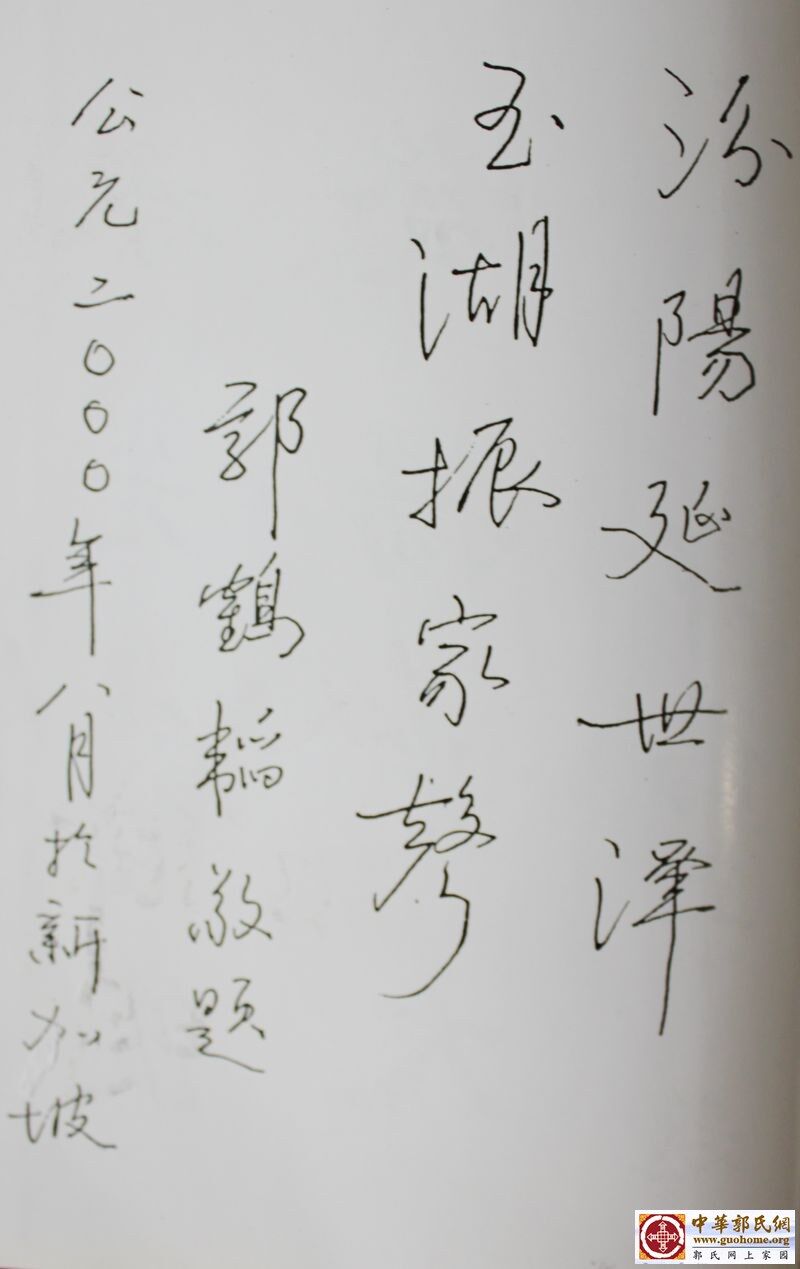 汾陽延世澤
玉湖振家聲
郭鶴韜敬題
公元二〇〇〇年八月於新加坡
中華郭氏網
www.guohome.org
郭氏网上家园